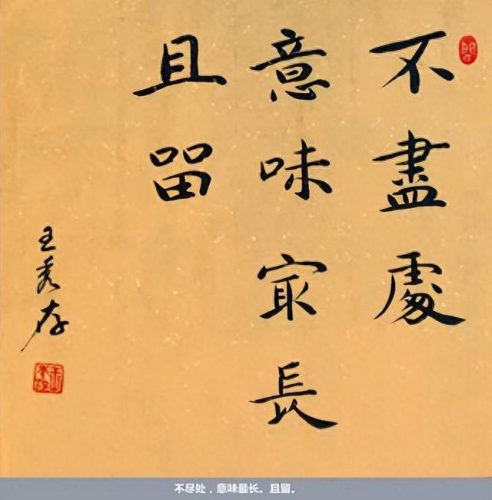 不盡處
意味㝡長
且留
王秀存
不尽处，意味最长。且留。